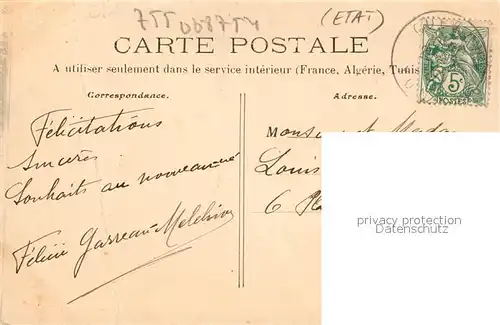 755
008754
(ETAT)
CARTE POSTALE
A utiliser seulement dans le service intérieur (France, Algérie, Tunis
5c
POSTES
Correspondance.
Adresse.
Félicitations
sincères
Souhaits au nouveau-né
Félicie Garreau-Melchior
Monsieur et Mada
Louis
6 Pla
privacy protection
Datenschutz